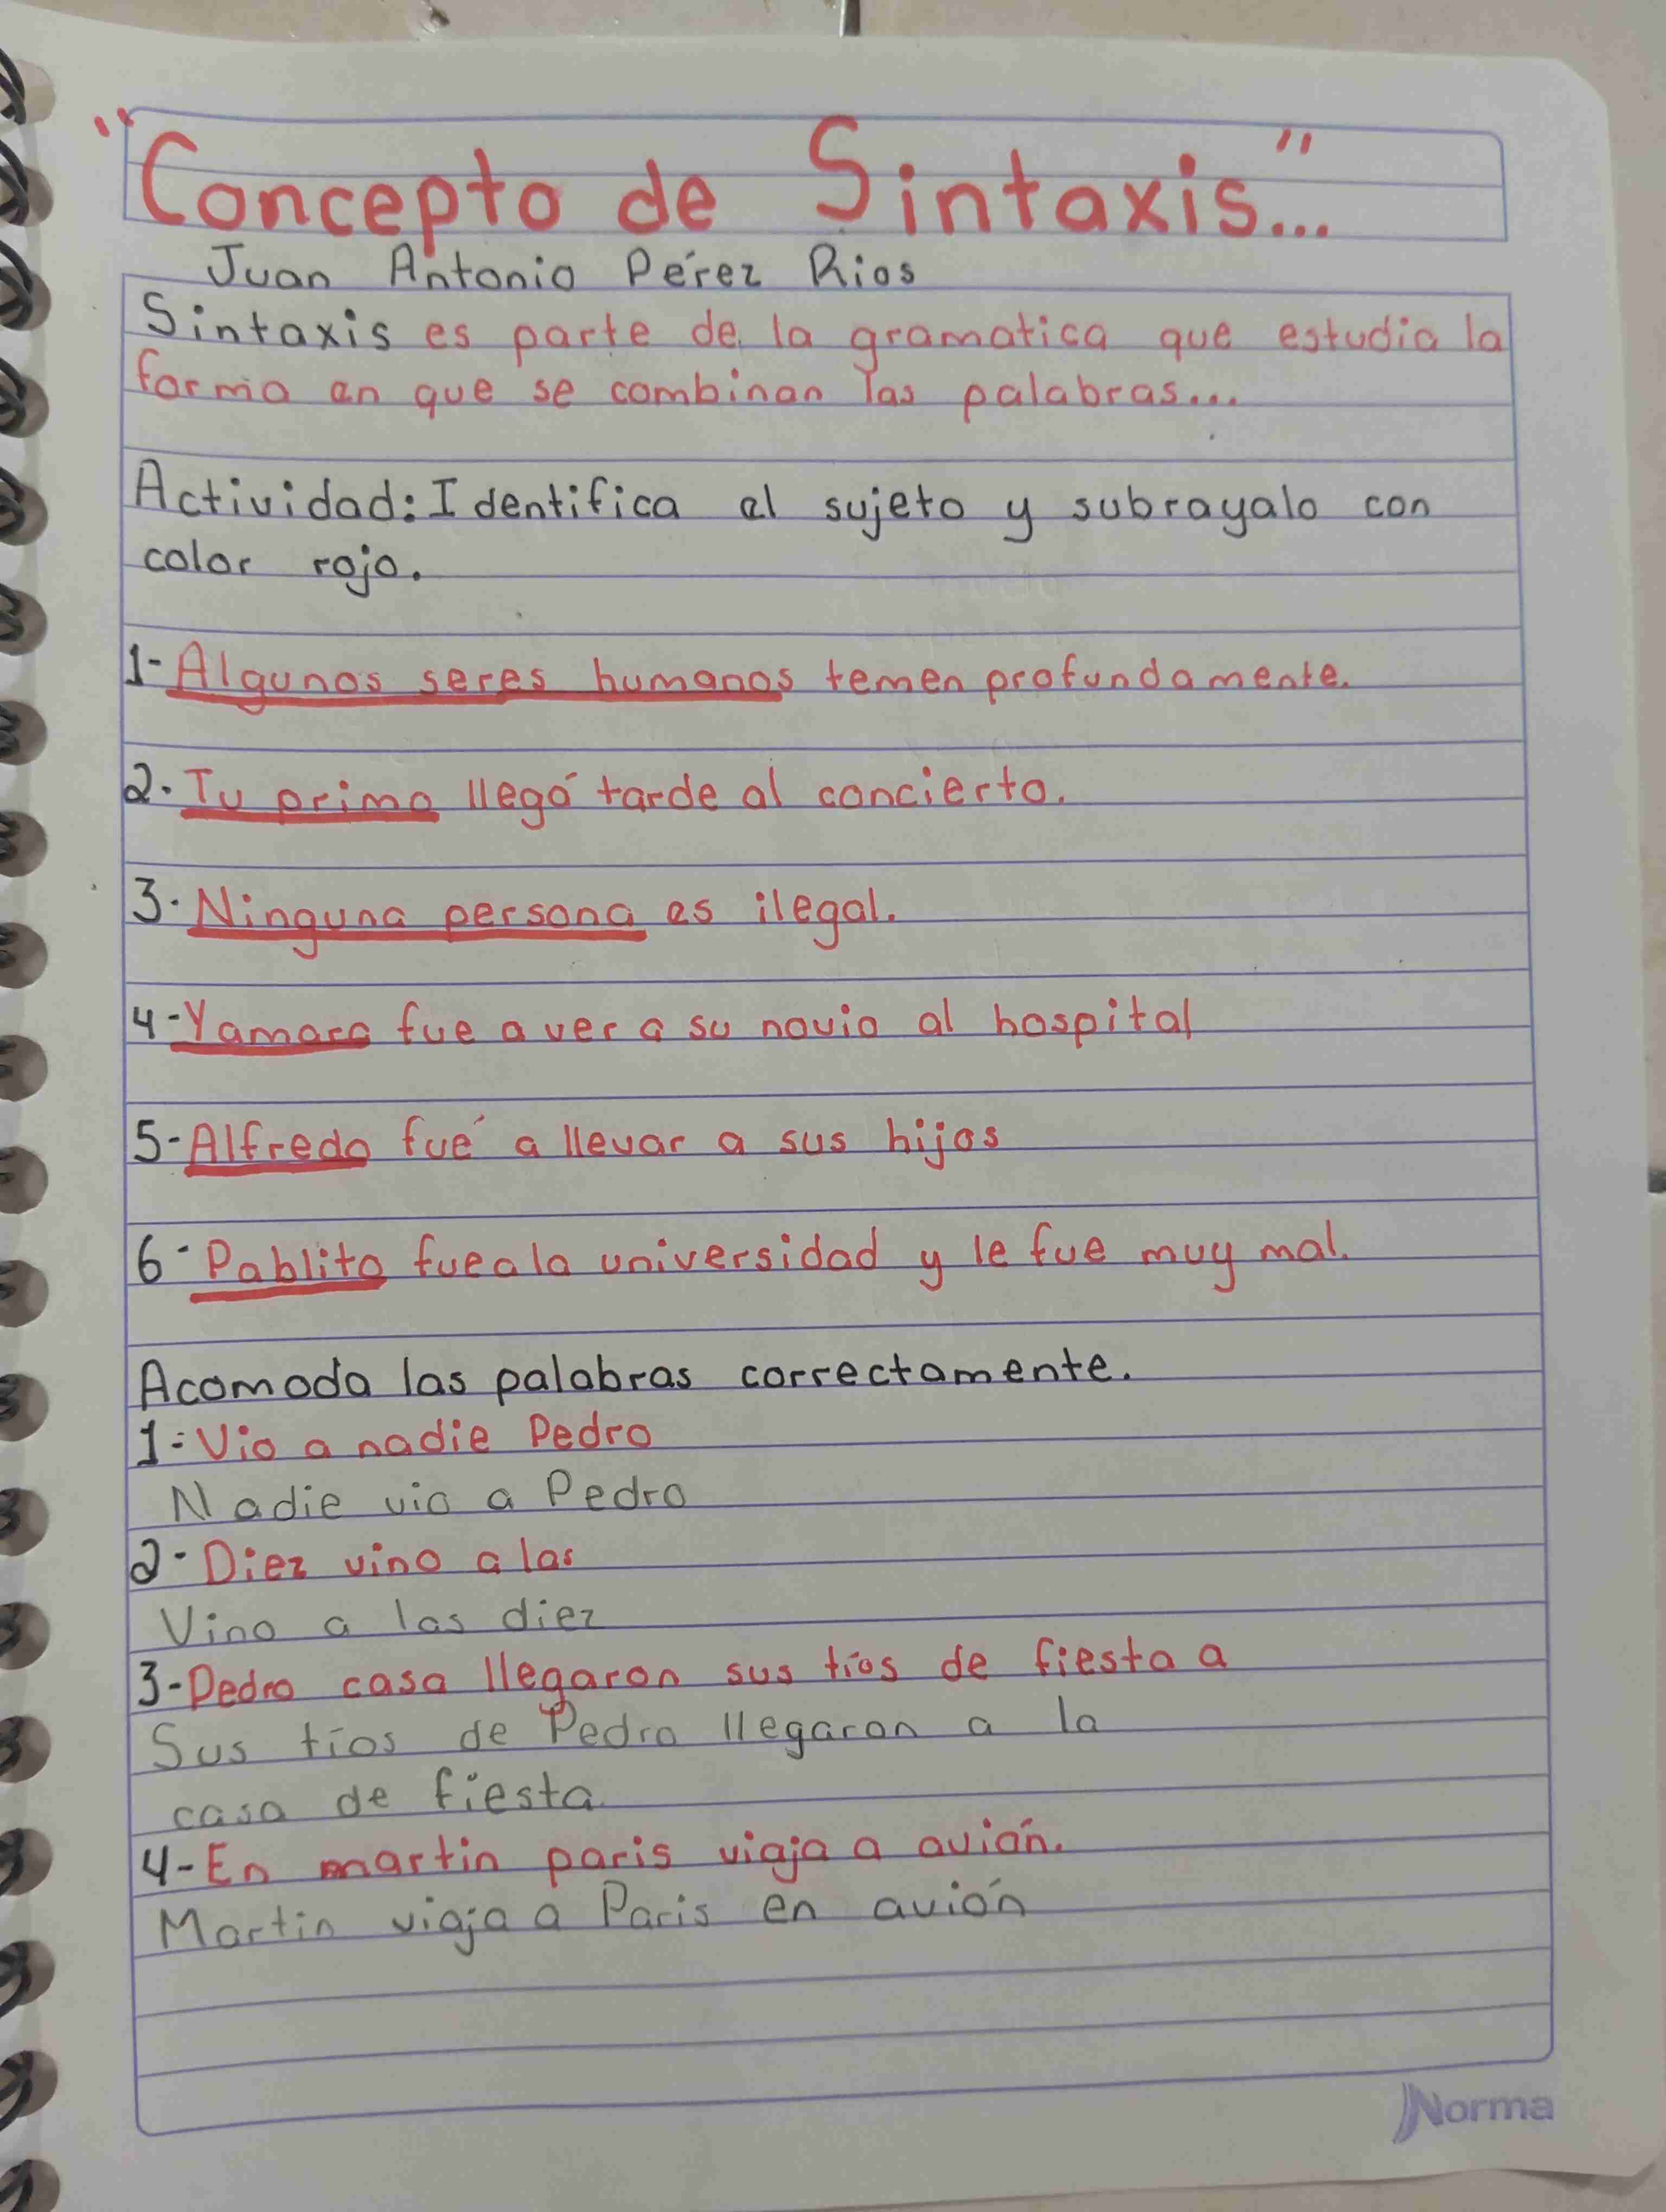 "Concepto de Sintaxis..."
Juan Antonio Pérez Rios
Sintaxis es parte de la gramatica que estudia la
forma en que se combinan las palabras...
Actividad: Identifica el sujeto y subrayalo con
color rojo.
1- Algunos seres humanos temen profundamente.
2. Tu primo llegó tarde al concierto.
3. Ninguna persona es ilegal.
4- Yamara fue a ver a su novio al hospital
5- Alfredo fué a llevar a sus hijos
6- Pablito fue a la universidad y le fue muy mal.
Acomoda las palabras correctamente.
1- Vio a nadie Pedro
Nadie vio a Pedro
2- Diez vino a las
Vino a las diez
3- Pedro casa llegaron sus tíos de fiesta a
Sus tíos de Pedro llegaron a la
casa de fiesta
4- En martin paris viaja a avión.
Martin viaja a Paris en avión
Norma